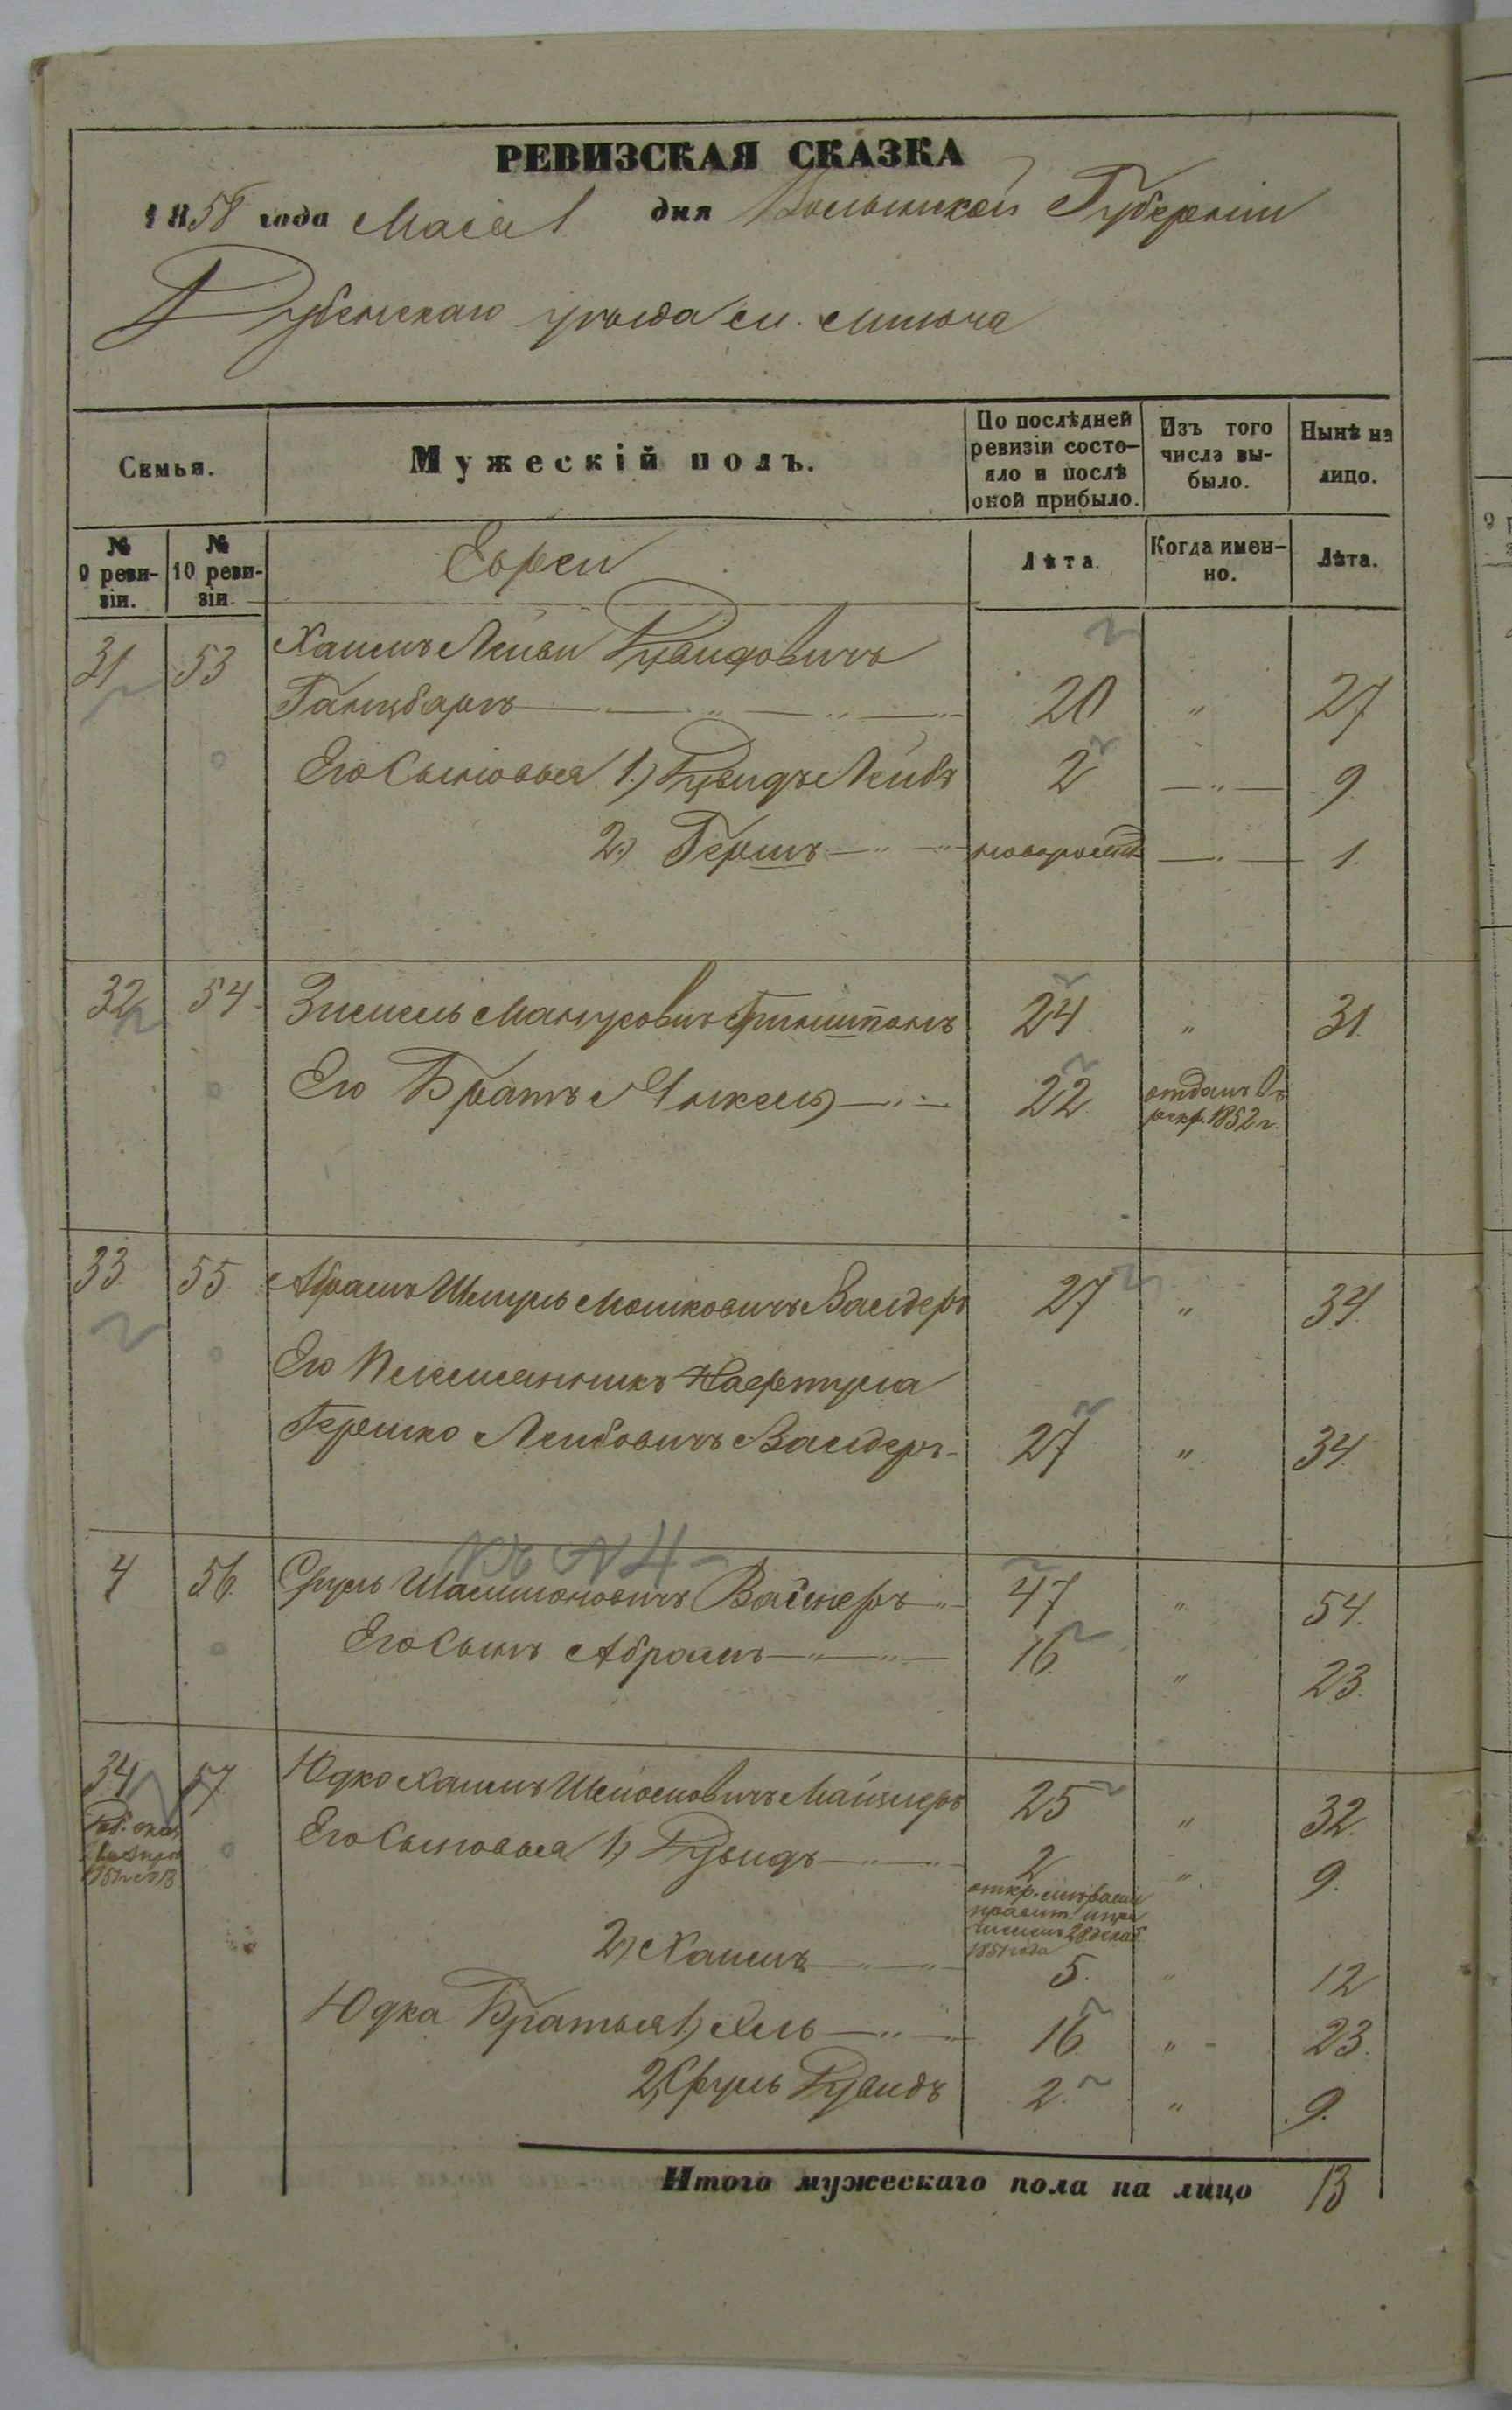 РЕВИЗСКАЯ СКАЗКА
1858 года Маія 1 дня Волынской Губерніи
Дубенскаго уѣзда м.
Семья.
Мужескій полъ.
По послѣдней ревизіи состо-
яло и послѣ
оной прибыло.
Изъ того
числа вы-
было.
Нынѣ на
лицо.
№
9 реви-
зіи.
№
10 реви-
зіи
Евреи
Лѣта.
Когда имен-
но.
Лѣта.
31 53 Хаимъ Лейви Дувидовичъ
Ганцбаргъ 20 " 27
Его Сыновья 1.) Дувидъ Лейбъ 2 " 9.
2.) Гершъ новорожд " 1.
32 54 Зисель Манусовичъ Гринштокъ 24 " 31.
Его Братъ Янкель 22. отданъ въ
рекр. 1852 г.
33 55. Абрамъ Шмуль Мошковичъ Валдеръ 27 " 34.
Его Племянникъ Нафтула
Гершко Лейбовичъ Валдеръ 27 " 34.
Къ № 4
4 56. Сруль Шлиомовичъ Вайнеръ 47 " 54.
Его Сынъ Абрамъ 16. " 23.
34 57. Юдко Хаимъ Шлиомовичъ Майзлеръ 25 " 32.
Его Сыновья 1) Дувидъ 2 " 9.
28 декаб.
1851 года
2) Хаимъ 5. " 12
Юдка Братья 1.) Хель 16. " 23.
2, Сруль Дувидъ 2. " 9.
Итого мужескаго пола на лицо 13